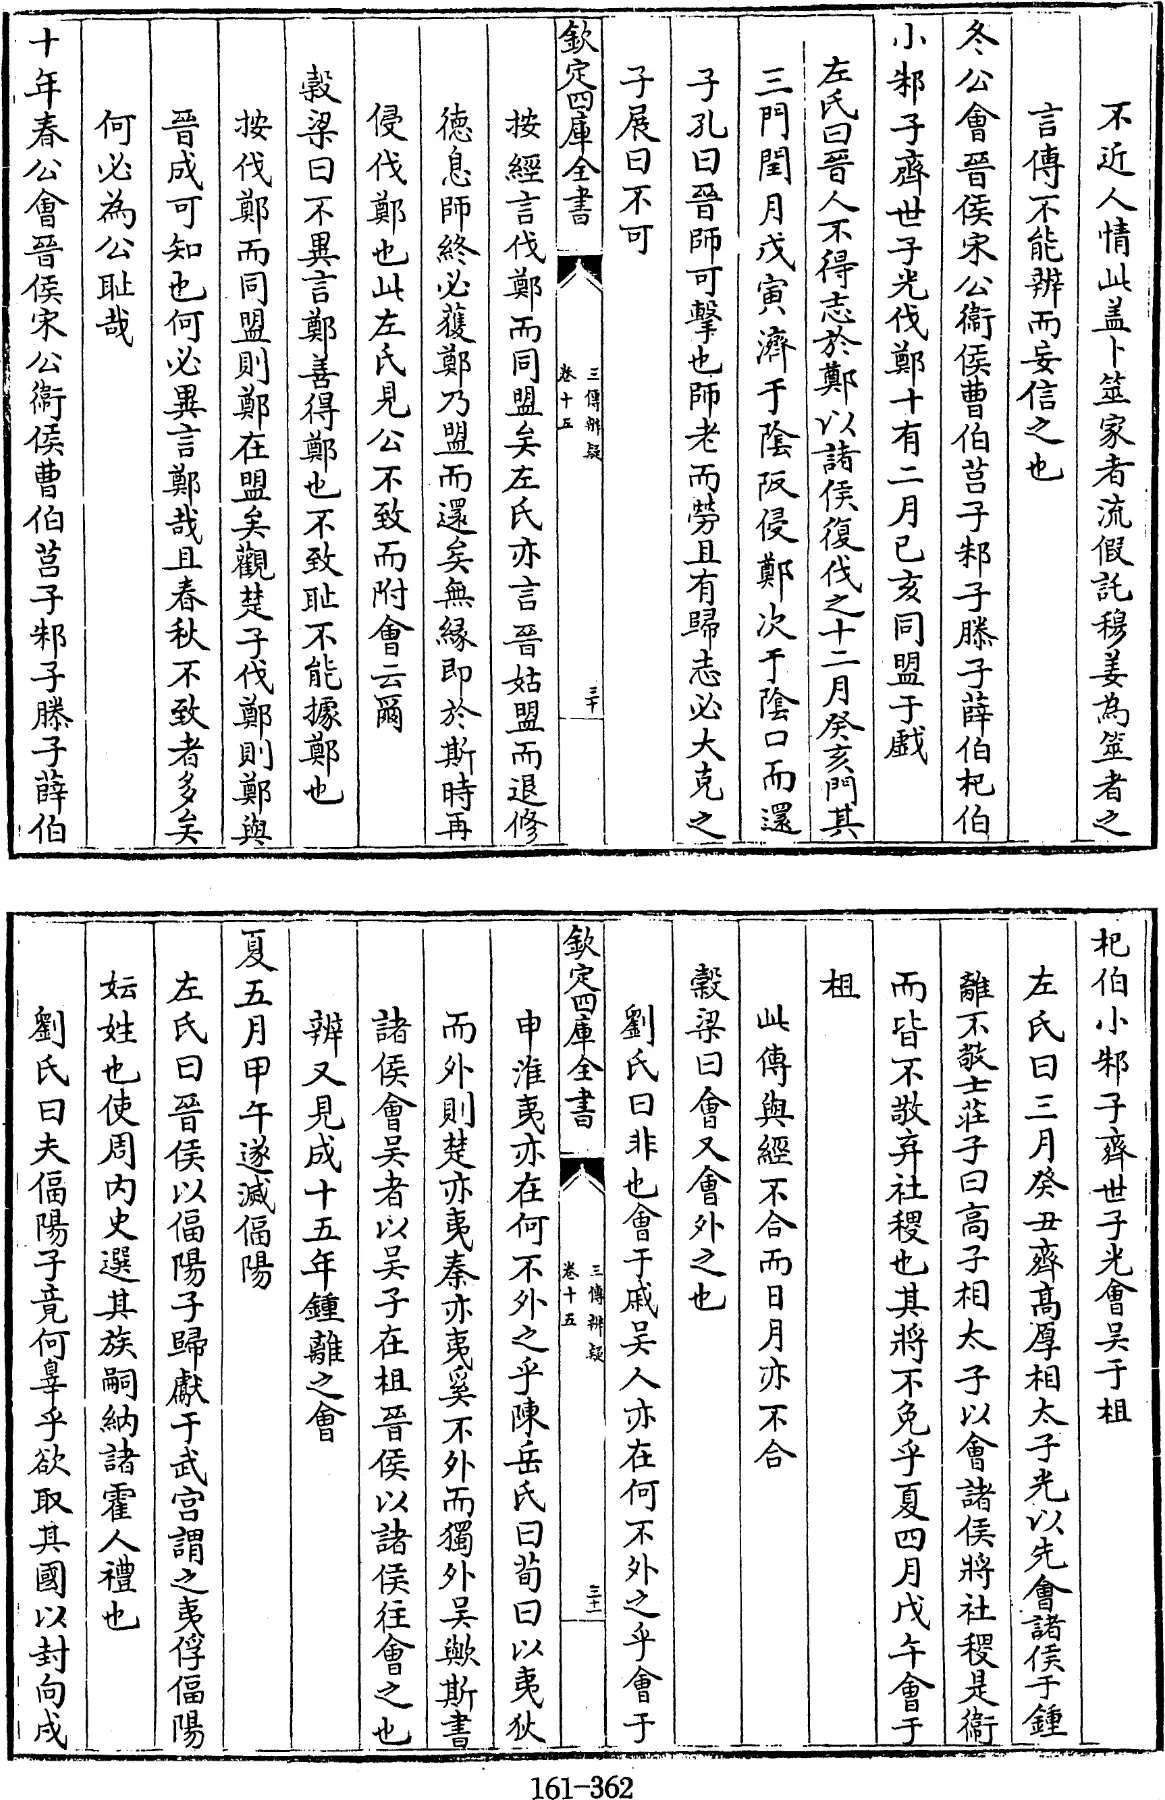 不近人情此盖卜筮家者流假託穆姜為筮者之
言傳不能辨而妄信之也
冬公會晉侯宋公衞侯曹伯莒子邾子滕子薛伯杞伯
小邾子齊世子光伐鄭十有二月己亥同盟于戲
左氏曰晉人不得志於鄭以諸侯復伐之十二月癸亥門其
三門閏月戊寅濟于陰阪侵鄭次于陰口而還
子孔曰晉師可擊也師老而勞且有歸志必大克之
子展曰不可
欽定四庫全書
三傳辨疑
卷十五
三十
按經言伐鄭而同盟矣左氏亦言晉姑盟而退修
德息師終必獲鄭乃盟而還矣無緣即於斯時再
侵伐鄭也此左氏見公不致而附會云爾
穀梁曰不異言鄭善得鄭也不致耻不能據鄭也
按伐鄭而同盟則鄭在盟矣觀楚子伐鄭則鄭與
晉成可知也何必異言鄭哉且春秋不致者多矣
何必為公耻哉
十年春公會晉侯宋公衞侯曹伯莒子邾子滕子薛伯
杞伯小邾子齊世子光會吳于柤
左氏曰三月癸丑齊髙厚相太子光以先會諸侯于鍾
離不敬士莊子曰高子相太子以會諸侯將社稷是衞
而皆不敬弃社稷也其將不免乎夏四月戊午會于
柤
此傳與經不合而日月亦不合
穀梁曰會又會外之也
劉氏曰非也會于戚吳人亦在何不外之乎會于
欽定四庫全書
三傳辨疑
卷十五
三十一
申淮夷亦在何不外之乎陳岳氏曰苟曰以夷狄
而外則楚亦夷秦亦夷奚不外而獨外吳歟斯書
諸侯會吳者以吳子在柤晉侯以諸侯往會之也
辨又見成十五年鍾離之會
夏五月甲午遂滅偪陽
左氏曰晉侯以偪陽子歸獻于武宫謂之夷俘偪陽
妘姓也使周内史選其族嗣納諸霍人禮也
劉氏曰夫偪陽子竟何辠乎欲取其國以封向戌
161-362